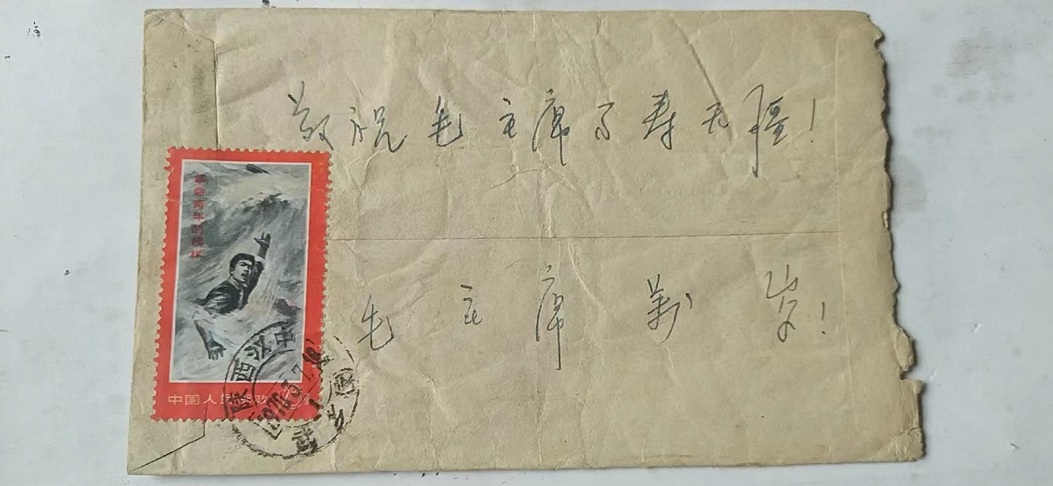 敬祝毛主席万寿无疆！
革命青年的榜样
毛主席万岁！
陕西汉中
1970.3.7.18
中国人民邮政